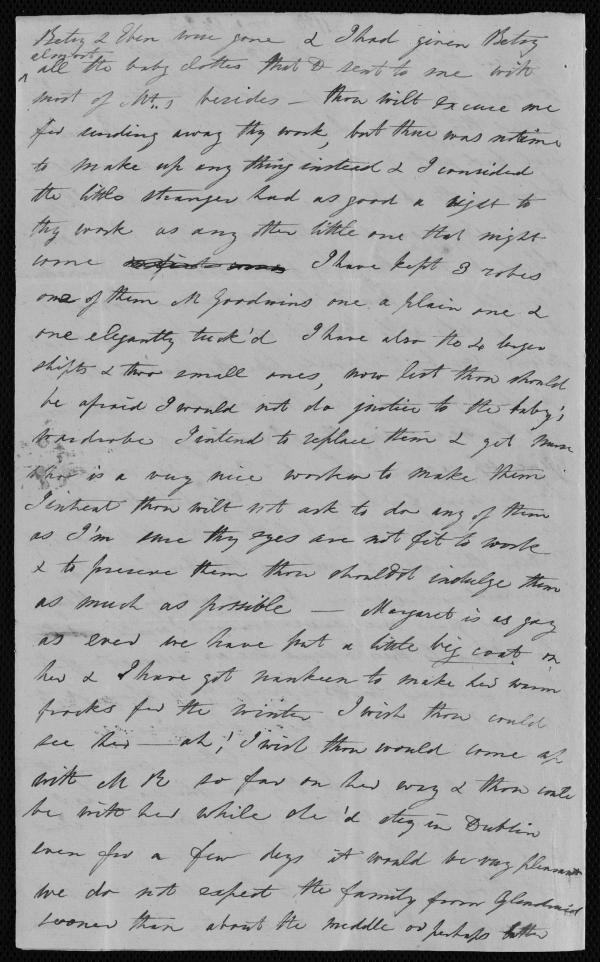 Betsy & Eben were gone & I had given Betsy
almost
^ all the baby clothes that D sent to me with
most of Mt.s besides — thou wilt excuse me
for sending away thy work, but there was no time
to make up any thing instead & I consided
the little stranger had as good a right to
thy work as any other little one that might
come I have kept 3 robes
one of them M Goodwins one a plain one &
one elegantly tuck'd I have also the 4 larger
shifts & two small ones, now lest thou should
be afraid I would not do justice to the baby's
wardrobe I intend to replace them & get Nurse
who is a very nice worker to make them
I intreat thou wilt not ask to do any of them
as I'm sure thy eyes are not fit to work
& to preserve them thou shouldst indulge them
as much as possible — Margaret is as gay
as ever we have put a little big coat on
her & I have got nankeen to make her warm
frocks for the winter I wish thou could
see her — ah! I wish thou would come up
with M R so far on her way & thou could
be with her while she'd stay in Dublin
even for a few days it would be very pleasant
we do not expect the family from Glendruid
sooner than about the middle or perhaps latter